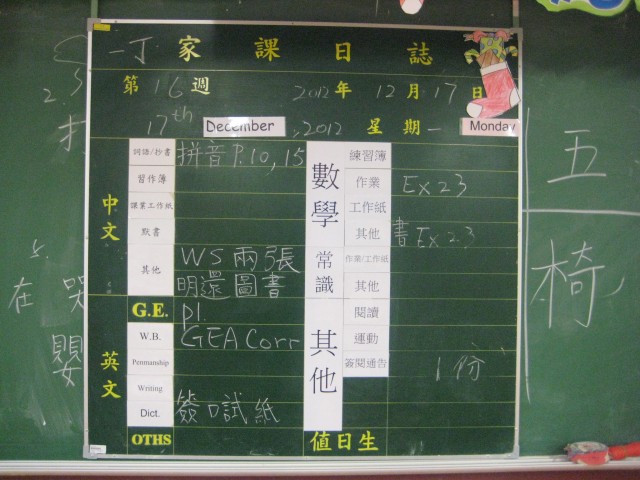 一丁 家課日誌
第 16 週 2012 年 12 月 17 日
17th December, 2012 星期一 Monday
中文
詞語/抄書 拼音 P.10, 15
習作簿
課業工作紙
默書
其他 WS 兩張
明還圖書
英文
G.E. p1.
W.B. GEA Corr
Penmanship
Writing
Dict. 簽口試紙
OTHS
數學
練習簿
作業 Ex 23
工作紙
其他 書 Ex 23
常識
作業/工作紙
其他
其他
閱讀
運動
簽閱通告 1份
值日生
五
椅
2.
5.
在
嬰